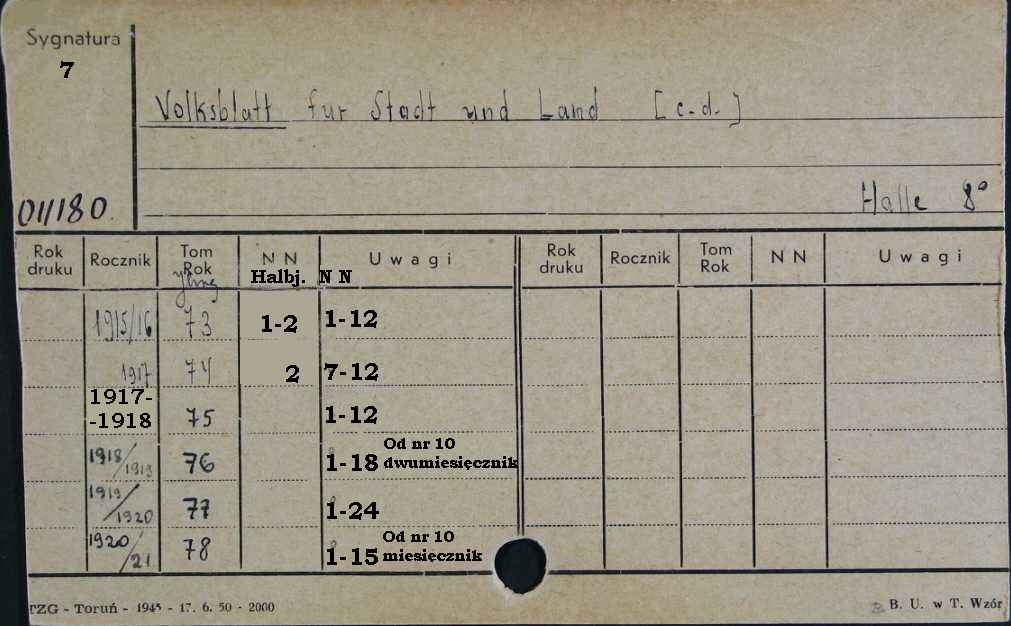 Sygnatura
7
Volksblatt für Stadt und Land [c.d.]
011180
Halle 8°
Rok druku Rocznik Tom Rok N N U w a g i Rok druku Rocznik Tom Rok N N U w a g i
Halbj. N N
1915/16 73 1-2 1-12
1917 74 2 7-12
1917-
-1918 75 1-12
1918/1919 76 1-18 Od nr 10 dwumiesięcznik
1919/1920 77 1-24
1920/21 78 1-15 Od nr 10 miesięcznik
TZG - Toruń - 1945 - 17. 6. 50 - 2000
B. U. w T. Wzór